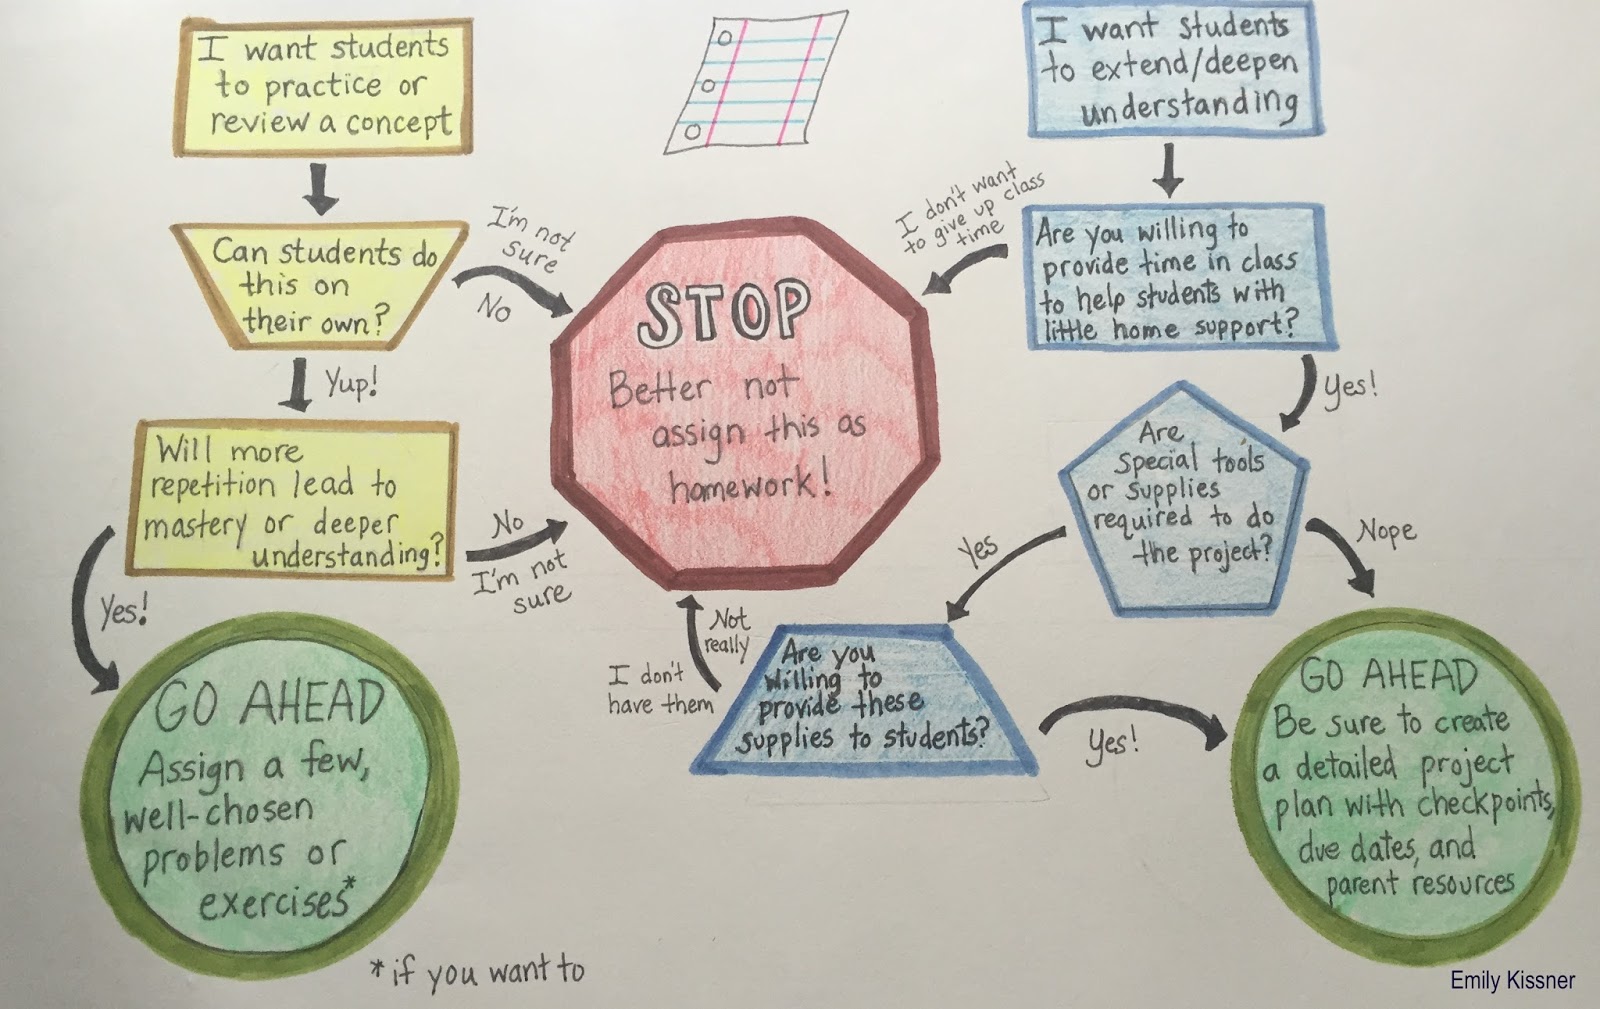 I want students
to practice or
review a concept
I want students
to extend/deepen
understanding
Can students do
this on
their own?
I'm not
sure
No
I don't want
to give up class
time
Are you willing to
provide time in class
to help students with
little home support?
STOP
Better not
assign this as
homework!
Yup!
Yes!
Will more
repetition lead to
mastery or deeper
understanding?
No
I'm not
sure
Are
special tools
or supplies
required to do
the project?
Yes
Nope
Yes!
Not
really
I don't
have them
Are you
willing to
provide these
supplies to students?
Yes!
GO AHEAD
Assign a few,
well-chosen
problems or
exercises*
GO AHEAD
Be sure to create
a detailed project
plan with checkpoints,
due dates, and
parent resources
*if you want to
Emily Kissner